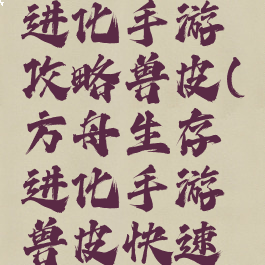 进化手游
攻略兽皮(
方舟生存
进化手游
兽皮快速